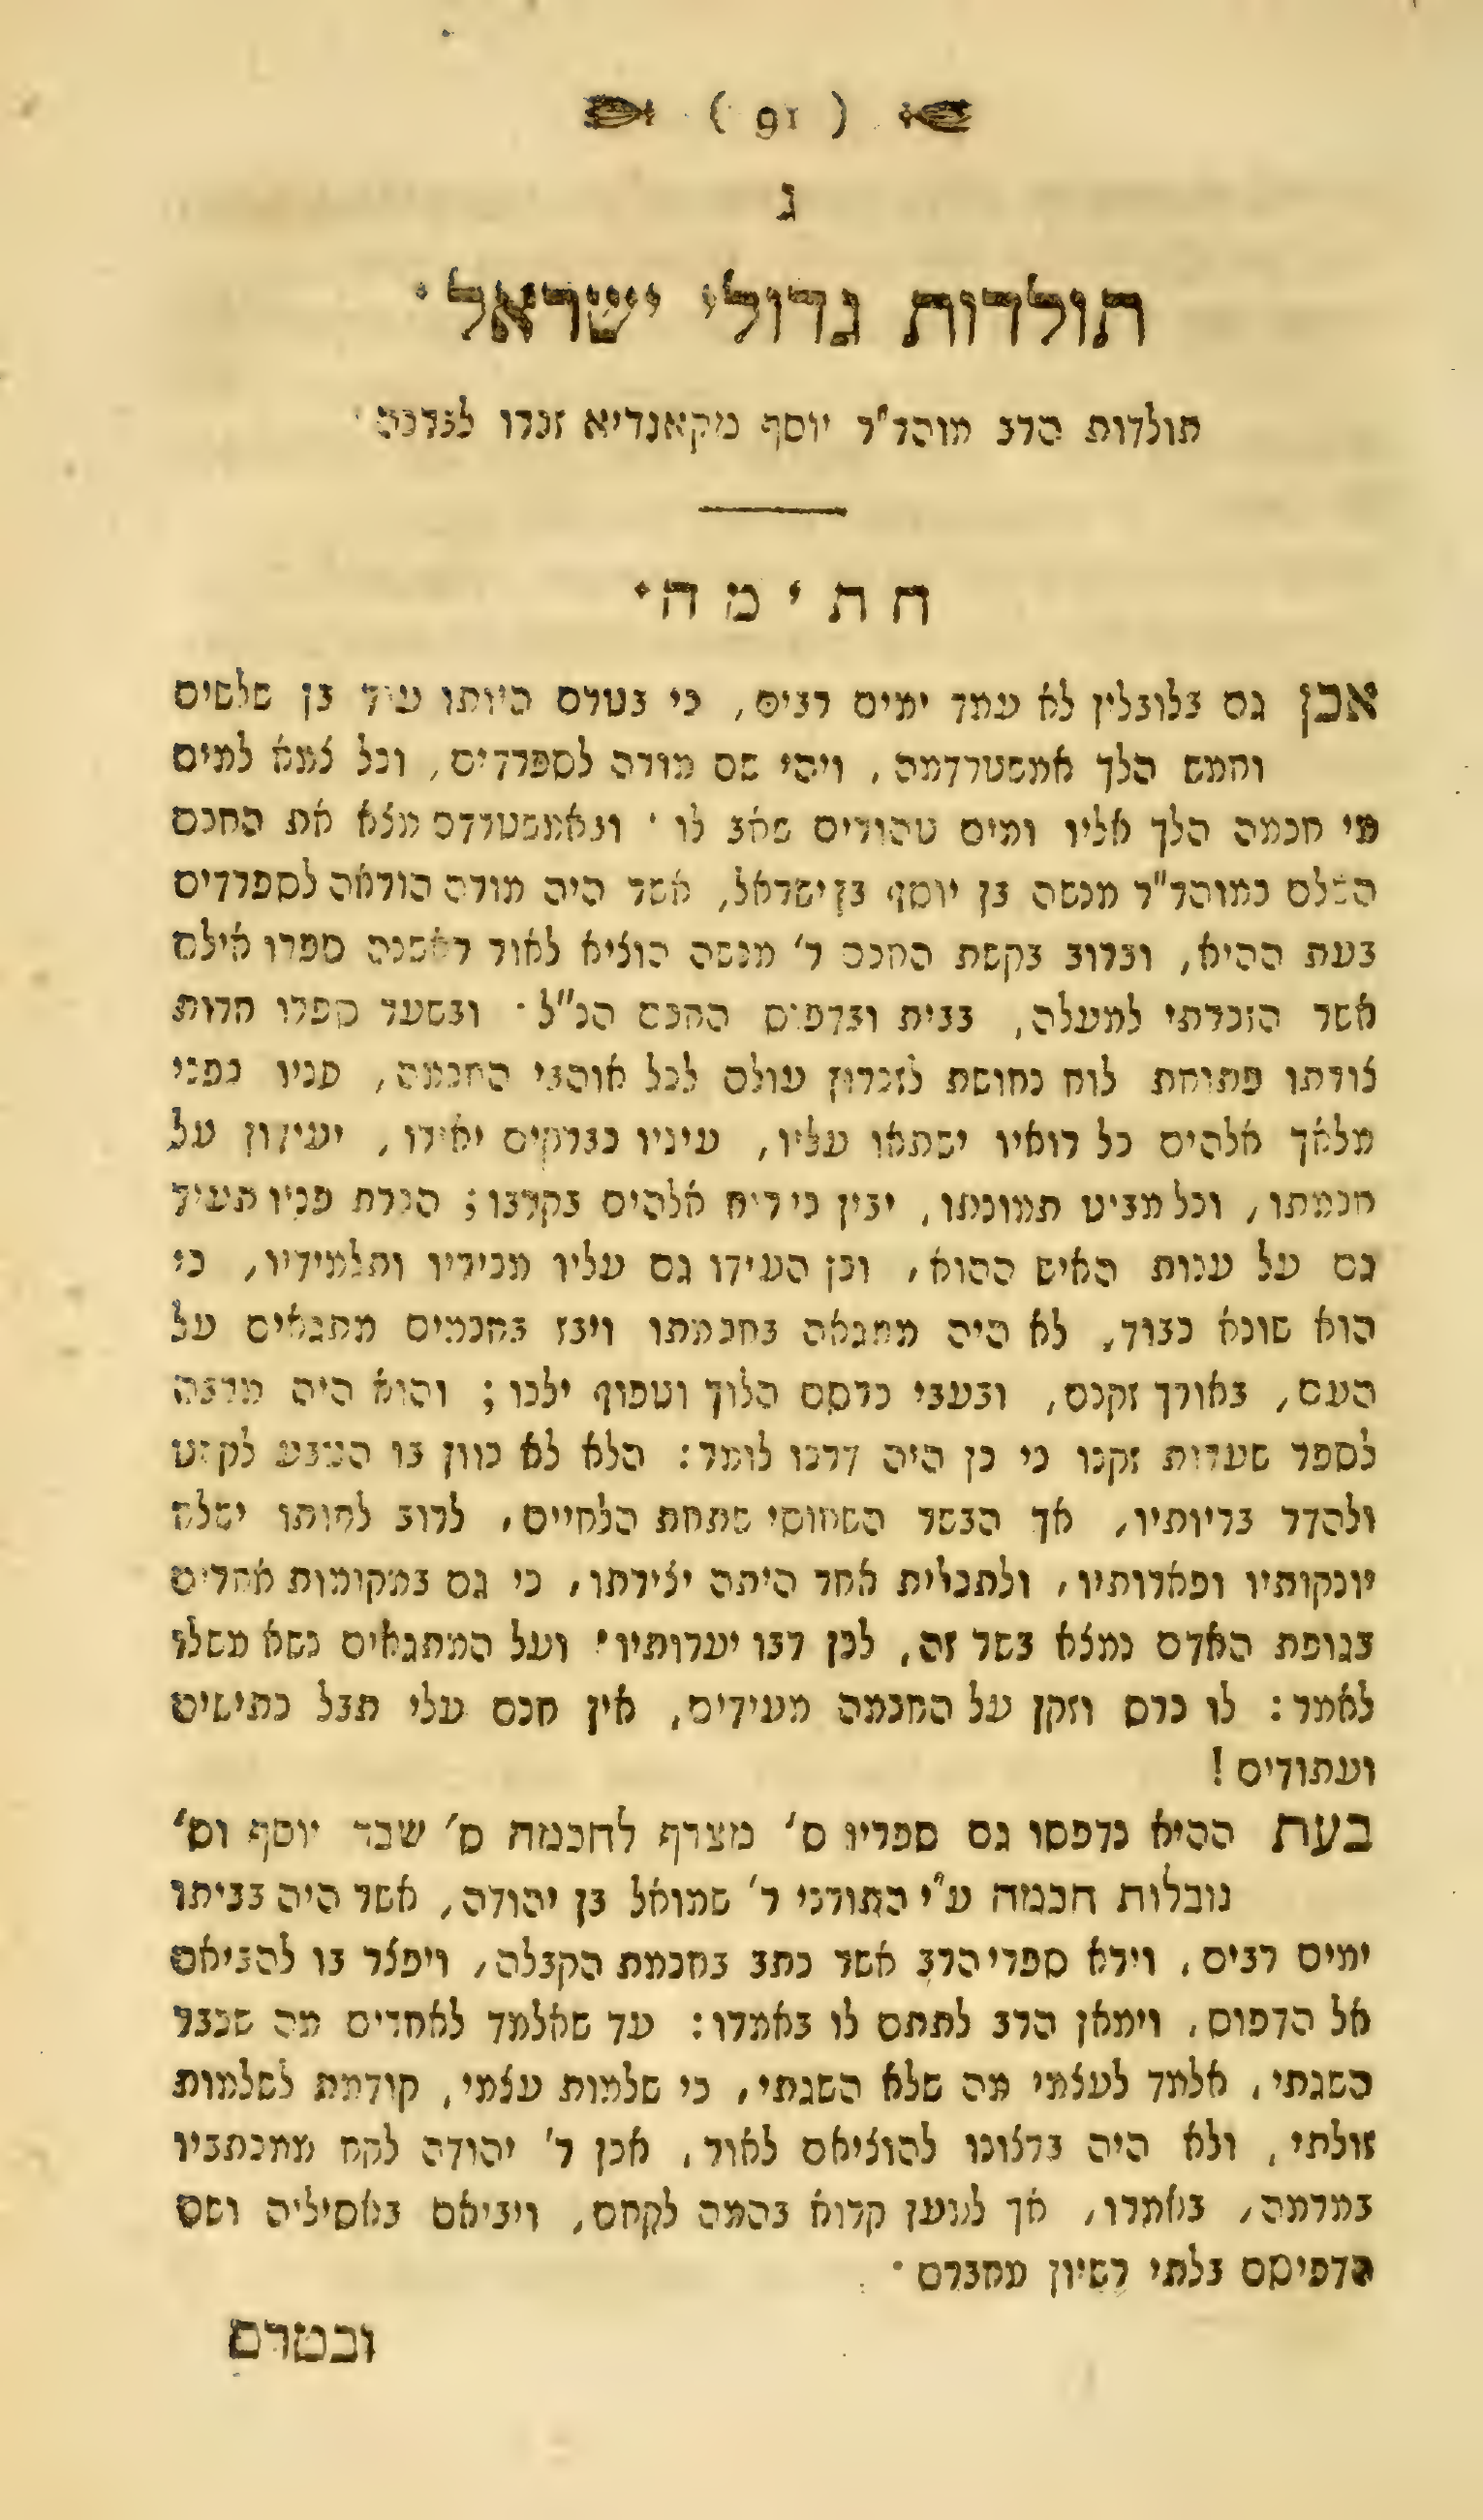 ( 91 )
ג
תולדות גדולי ישראל·
תולדות הרב מוהר"ר יוסף מקאנדיא זכרו לברכה·
חתימה·
אכן גם בלובלין לא עמד ימים רבים, כי בטרם היותו עוד בן שלשים
וחמש הלך אמשטרדמה, ויהי שם מורה לספרדים, וכל צמא למים
מי חכמה הלך אליו ומים טהורים שאב לו· ובאמשטרדם מצא את החכם
השלם כמוהר"ר מנשה בן יוסף בן ישראל, אשר היה מורה הוראה לספרדים
בעת ההיא, וברוב בקשת החכם ר' מנשה הוציא לאור ראשנה ספרו אילם
אשר הזכרתי למעלה, בבית ובדפוס החכם הנ"ל· ובשער ספרו חרות
צורתו פתוחת לוח נחושת לזכרון עולם לכל אוהבי החכמה, פניו כפני
מלאך אלהים כל רואיו ישתאו עליו, עיניו כברקים יאירו, יעידון על
חכמתו, וכל מביט תמונתו, יבין כי ריח אלהים בקרבו; הכרת פניו תעיד
גם על ענות האיש ההוא, וכן העידו גם עליו מכיריו ותלמידיו, כי
הוא שונא כבוד, לא היה מתגאה בחכמתו ויבז בחכמים מתגאים על
העם, באורך זקנם, ובעבי כרסם הלוך וטפוף ילכו; והוא היה מרבה
לספר שערות זקנו כי כן היה דרכו לומר: הלא לא כוון בו הטבע לקשט
ולהדר בריותיו, אך הבשר השחוסי שתחת הלחיים, לרוב לחותו ישלח
יונקותיו ופארותיו, ולתכלית אחר היתה יצירתו, כי גם במקומות אחרים
בגופת האדם נמצא בשר זה, לכן רבו יערותיו· ועל המתגאים נשא משלו
לאמר: לו כרס וזקן על החכמה מעידים, אין חכם עלי תבל כתישים
ועתודים!
בעת ההיא נדפסו גם ספריו ס' מצרף לחכמה ס' שבר יוסף וס'
נובלות חכמה ע"י התורני ר' שמואל בן יהודה, אשר היה בביתו
ימים רבים, וירא ספרי הרב אשר כתב בחכמת הקבלה, ויפצר בו להביאם
אל הדפוס, וימאן הרב לתתם לו באמרו: עד שאלמד לאחרים מה שכבר
השגתי, אלמד לעצמי מה שלא השגתי, כי שלמות עצמי, קודמת לשלמות
זולתי, ולא היה ברצונו להוציאם לאור, אכן ר' יהודה לקח ממכתביו
במרמה, באמרו, אך למען קרוא בהמה לקחם, ויביאם באסיליה ושם
הדפיסם בלתי רשיון מחברם·
ובטרם